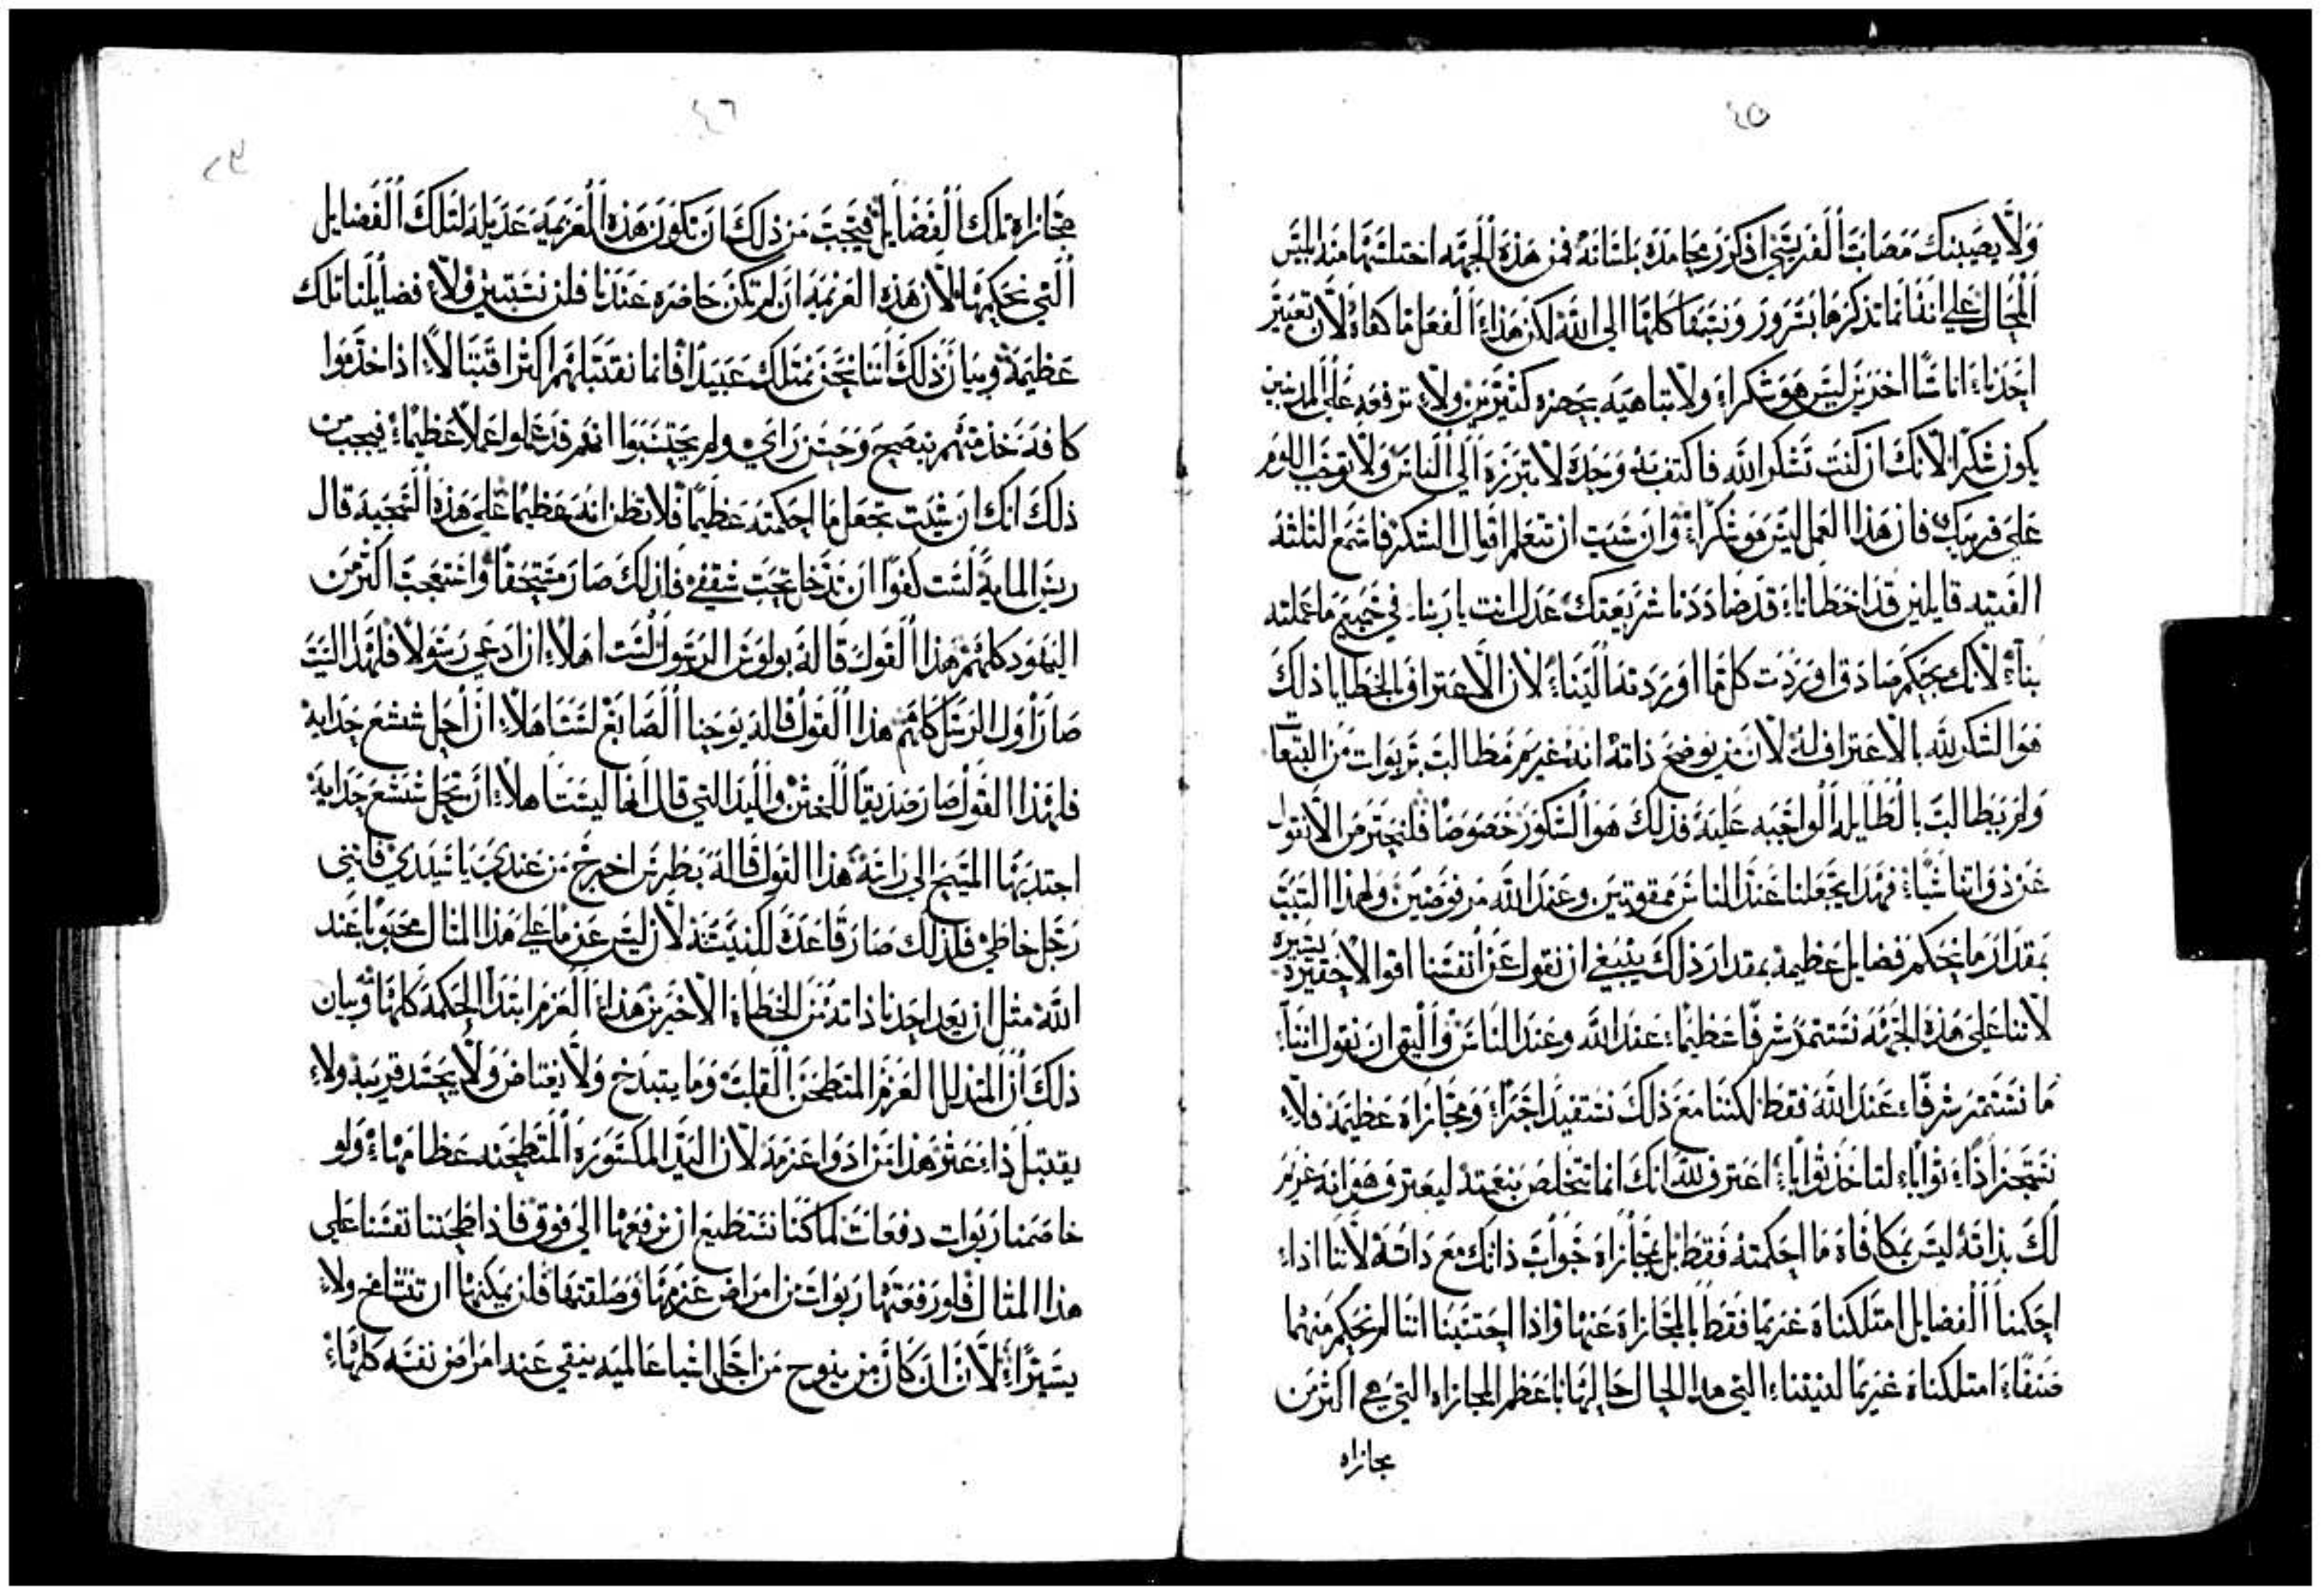 ٤٥
ولا يصيبنك مصاب الفريسي اذكر محامده بلسانه فمن هذه الجهه اختلستها منه ابليس
المحال على اننا انما تذكرها بسرور ونسبقا كلها الى الله لكن هذا الفعل ما كفاه لان تعيير
احدنا اناسًا اخرين ليس هو شكرا ولا تباهيه بجهره كثيرين ولا ترفعه على المذنبين
يكون شكرًا لانك ان كنت تشكر الله فاكتف به وحده لا تبرزه الى الناس ولا توجب اللوم
على قريبك فان هذا العمل ليس هو شكرًا وان شيت ان تتعلم اقوال الشكر فاسمع الثلثه
الفتيه قايلين قد اخطانا قد ضاددنا شريعتك عدل انت يا ربنا في جميع ما عملته
بنا لانك بحكم صادق اوردت كل ما اوردته الينا لان الاعتراف بالخطايا ذلك
هو الشكر لله بالاعتراف له لان من يوضح ذاته انه غريم مطالب بربوات من التبعات
ولم يطالب بالطايله الواجبه عليه فذلك هو الشكور خصوصًا فلنحترس من الا نقول
عن ذواتنا شيًا فهذا يجعلنا عند الناس ممقوتين وعند الله مرفوضين ولهذا السبب
بمقدار ما نحكم فضايل عظيمه بمقدار ذلك ينبغي ان نقول عن انفسنا اقوالا حقيره يسيره
لاننا على هذه الجهه نستثمر شرفًا عظيمًا عند الله وعند الناس واليق ان نقول اننا
ما نستثمر شرفًا عند الله فقط لكننا مع ذلك نستفيد اجرًا ومجازاه عظيمه فلا
تستجز اذًا ثوابًا لتاخذ ثوابًا اعترف لله انك انما تتخلص بنعمته ليعترف هو انه غريم
لك بذاته ليس بمكافاة ما احكمته فقط بل بمجازاه جواب ذاتك مع ذاته لاننا اذا
احكمنا الفضايل امتلكناه غريمًا فقط بالمجازاة عنها واذا احتسبنا اننا لم نحكم منهما
صنفًا امتلكناه غريمًا لنيتنا التي هذا الحال حالها باعظم المجازاه التي هي اكثر من
مجازاه
٤٦
٢٣
مجازاة تلك الفضايل فيجب من ذلك ان تكون هذه العزيمه عديله لتلك الفضايل
التي نحكمها لان هذه العزيمه ان لم تكن حاضره عندنا فلن تستبين ولا فضايلنا تلك
عظيمة وبيان ذلك اننا نحن نمتلك عبيدًا فانما نقتبلهم اكثر اقتبالا اذا خدموا
كافة خدمتهم بنصح وحسن راي ولم يحتسبوا انهم قد عملوا عملا عظيمًا فيجب من
ذلك انك ان شيت تجعل ما احكمته عظيمًا فلا تظن انه عظيمًا على هذه السجيه قال
ريس المايه لست كفوًا ان تدخل تحت سقفي فلذلك صار مستحقًا واستعجب اكثر من
اليهود كلهم هذا القول قاله بولوس الرسول لست اهلا ان ادعى رسولا فلهذا السبب
صار اول الرسل كلهم هذا القول قاله يوحنا الصابغ لست اهلا ان احل شسع حدايه
فلهذا القول صار صديقًا للختن واليد التي قال انها ليست اهلا ان تحل شسع حدايه
اجتدبها المسيح الى راسه هذا القول قاله بطرس اخرج من عندي يا سيدي فانني
رجل خاطي فلذلك صار قاعدة للكنيسه لان ليس عزمًا على هذا المثال محبوبًا عند
الله مثل ان يعد احدنا ذاته من الخطاه الاخيرين هذا العزم ابتدا الحكمة كلها وبيان
ذلك ان المتذلل العزم المنطحن القلب وما يتبدخ ولا يغتاض ولا يحسد قريبه ولا
يقتبل ذا عثر هذا من ادوا عزمه لان اليد المكسوره المنطحنه عظامها ولو
خاصمنا ربوات دفعات لما كنا نستطيع ان نرفعها الى فوق فاذا طحنا نفسنا على
هذا المثال فلو رفعتها ربوات من امراض عزمها وصلفتها فلن يمكنها ان تتشامخ ولا
يسيرًا لان ان كان من ينوح من اجل اشيا عالميه ينقي عنه امراض نفسه كلها